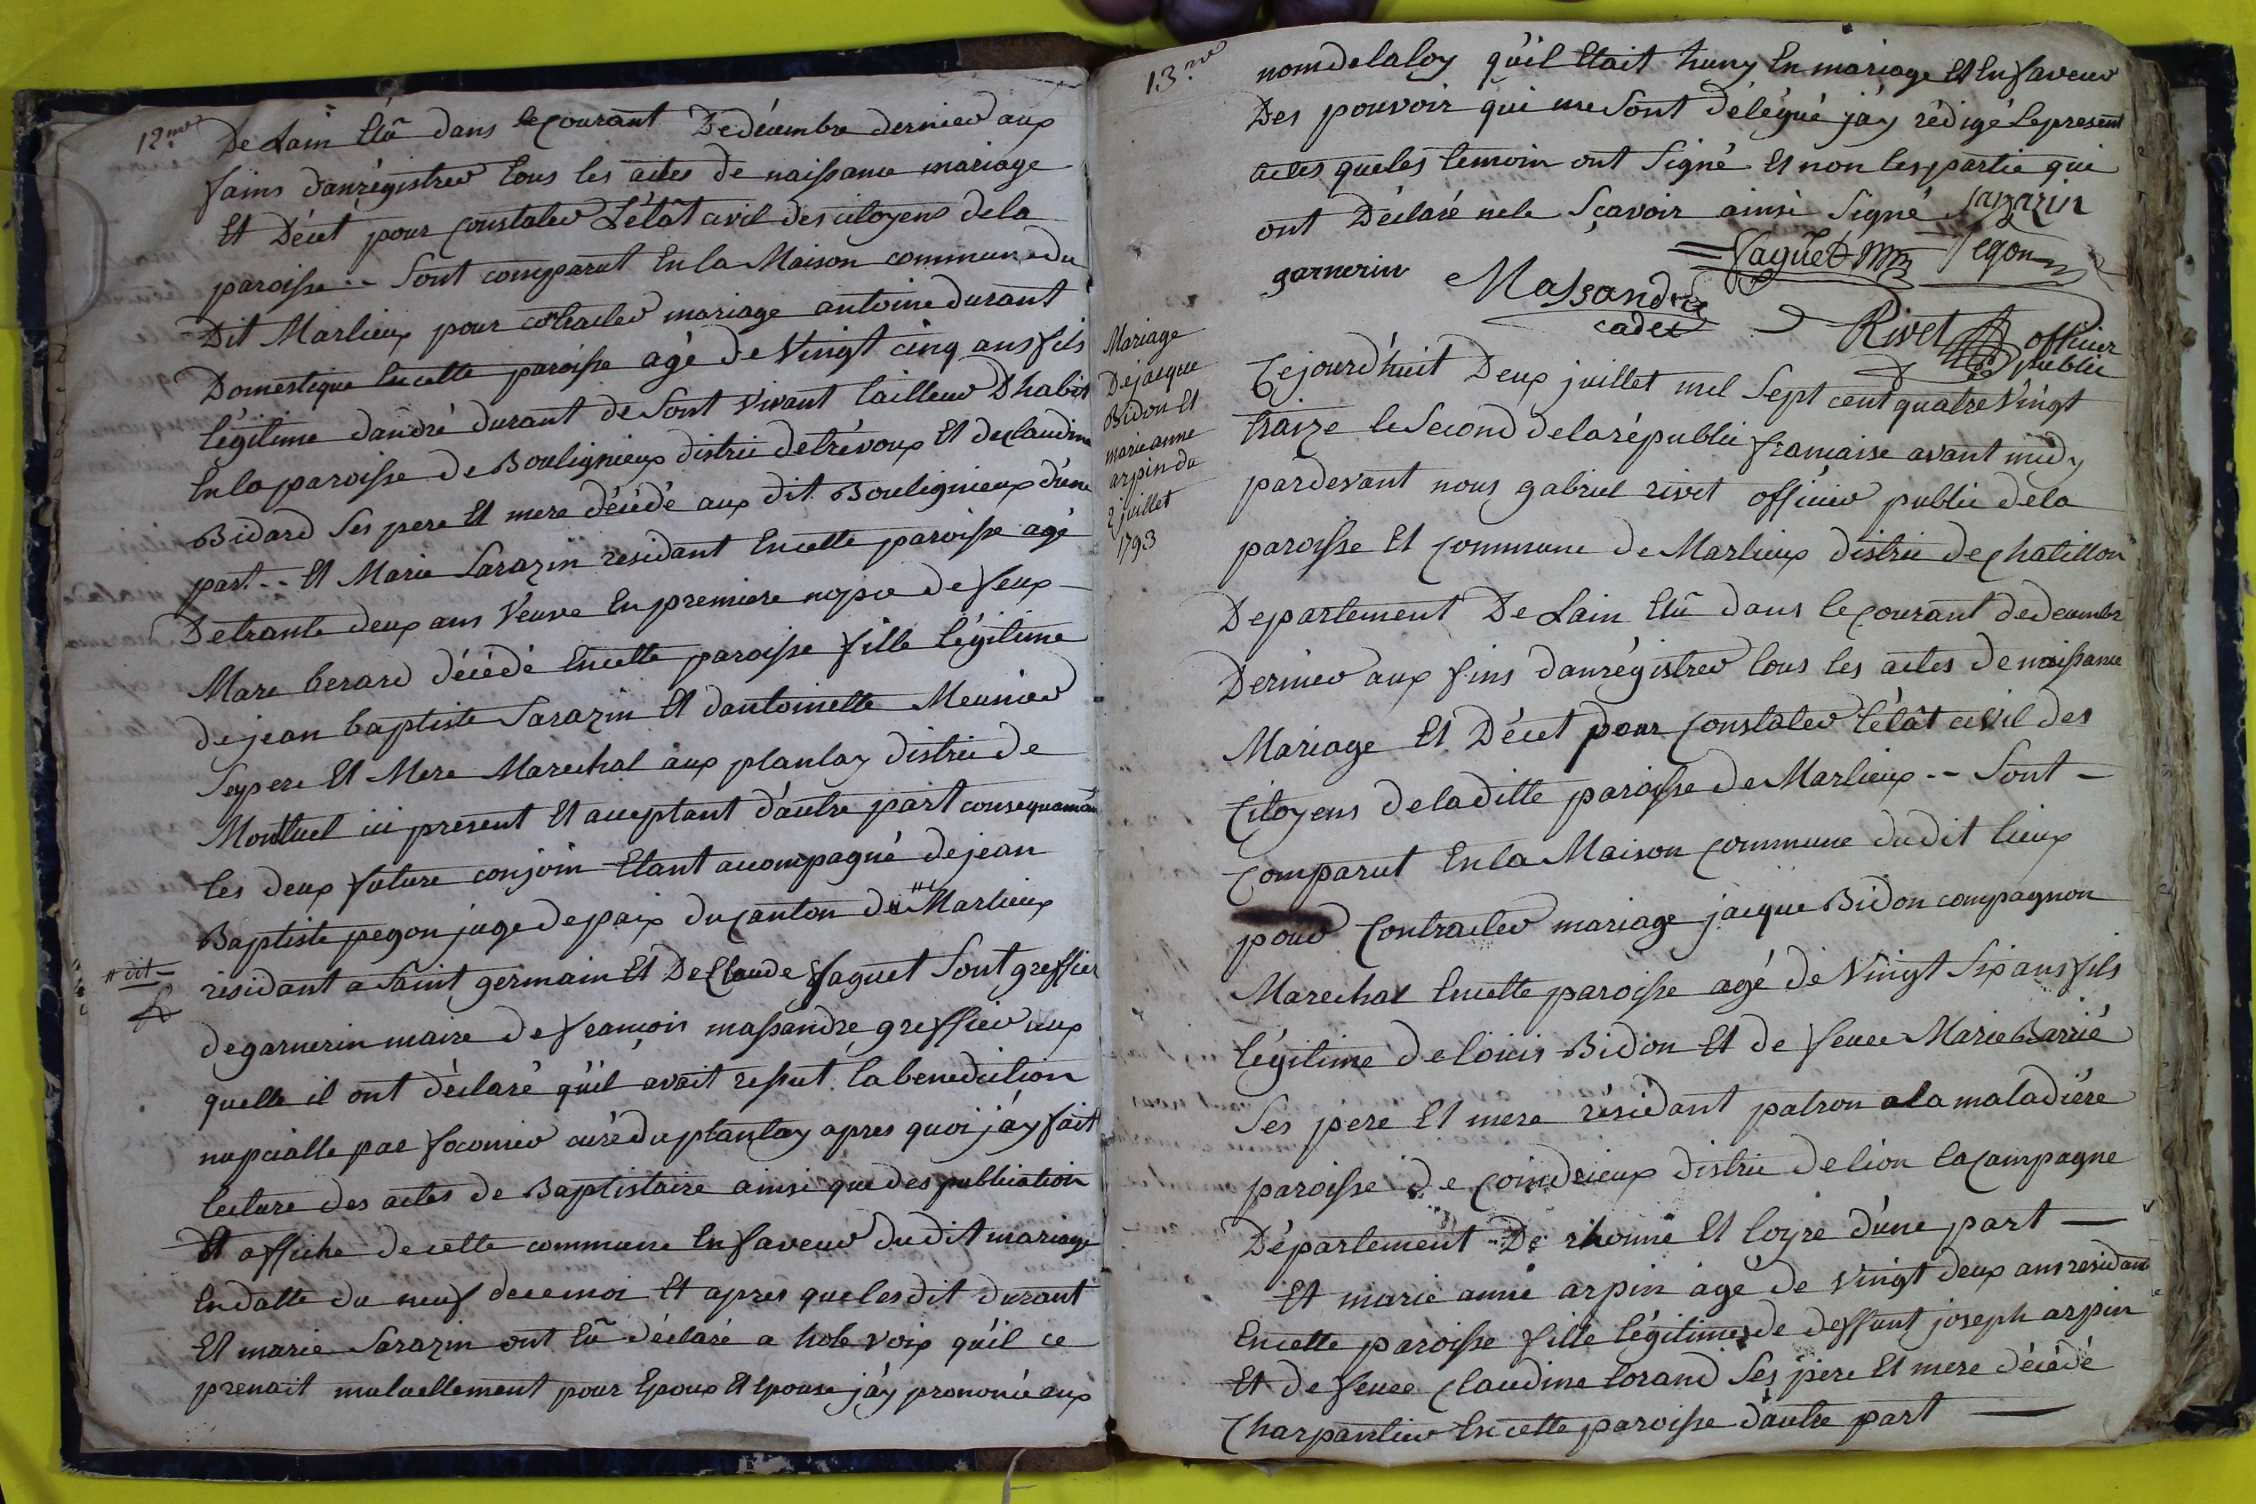 12.me
De Lain Elû dans le courant De décembre dernier aux
fains d'anrégistrer tous les actes de naissance mariage
Et Décet pour constater L'étât civil des citoyens dela
paroisse -- Sont comparut En la Maison commune du
Dit Marlieux pour contracter mariage antoine durant
Domestique En cette paroisse agé de Vingt cinq ans fils
légitime d'andré durant de Sont vivant tailleur D'habit
En la paroisse de Boulignieux distric de trévoux Et de claudine
Bidard Ses pere Et mere décédé aux dit Boulignieux d'une
part -- Et Marie Sarazin residant En cette paroisse agé
De trante deux ans Veuve En premiere nopce de feux
Marc berard décédé En cette paroisse fille légitime
de jean baptiste Sarazin Et d'antoinette Meunier
Ses pere Et Mere Marechal aux plantay distric de
Montluel ici present Et acceptant d'autre part consequament
les deux future conjoin Etant accompagné de jean
Baptiste pegon juge de paix du canton du " Marlieux
" dit
residant a Saint germain Et De Claude faguet Sont greffier
de garnerin maire de francois massandre greffier aux
quelle il ont déclaré qu'il avait ressut la benediction
nupcialle par focomier curé du plantay apres quoi j'ay fait
lecture des actes de Baptistaire ainsi que des publication
Et affiche de cette commune En faveur du dit mariage
En datte du neuf de ce moi Et apres que les dit durant
Et marie Sarazin ont Eû déclaré a hote voix qu'il ce
prenait mutuellement pour Epoux Et Epouse j'ay prononcé aux
13.me
nom de la loy qu'il Etait huny En mariage Et En faveur
Des pouvoir qui me Sont délégué j'ay rédigé le present
actes que les temoin ont Signé Et non les partie qui
ont Déclaré ne le Sçavoir ainsi Signé Sarazin
garnerin Massandre cadet faguet Pegon
Rivet officier public
Mariage
De jacque
Bidon Et
marie anne
arpin du
2 juillet
1793
Cejourd'huit Deux juillet mil Sept cent quatre Vingt
traize le Second de la républic francaise avant midy
pardevant nous gabriel rivet officier public de la
paroisse Et Commune de Marlieux distric de chatillon
Departement De Lain Elû dans le courant de decembre
Dernier aux fins d'anrégistrer tous les actes de naissance
Mariage Et Décet pour constater l'étât civil des
Citoyens de la ditte paroisse de Marlieux -- Sont -
Comparut En la Maison commune dudit lieux
pour Contracter mariage jacque Bidon compagnon
Marechal En cette paroisse agé de Vingt Six ans fils
légitime de loicis Bidon Et de feuee Marie Barrié
Ses pere Et mere résidant patron a la maladiére
paroisse de Coindrieux distric de lion la Campagne
Département De rhonne Et loyre d'une part —
Et marie anne arpin agé de vingt deux ans residant
En cette paroisse fille légitime de deffunt joseph arpin
Et de feuee Claudine lorand Ses pere Et mere décédé
Charpantier En cette paroisse d'autre part —